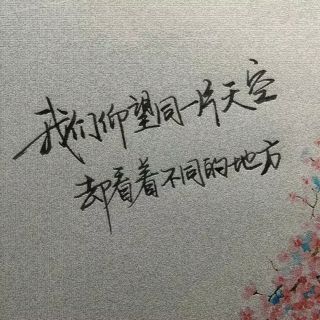 我们仰望同一片天空
却看着不同的地方